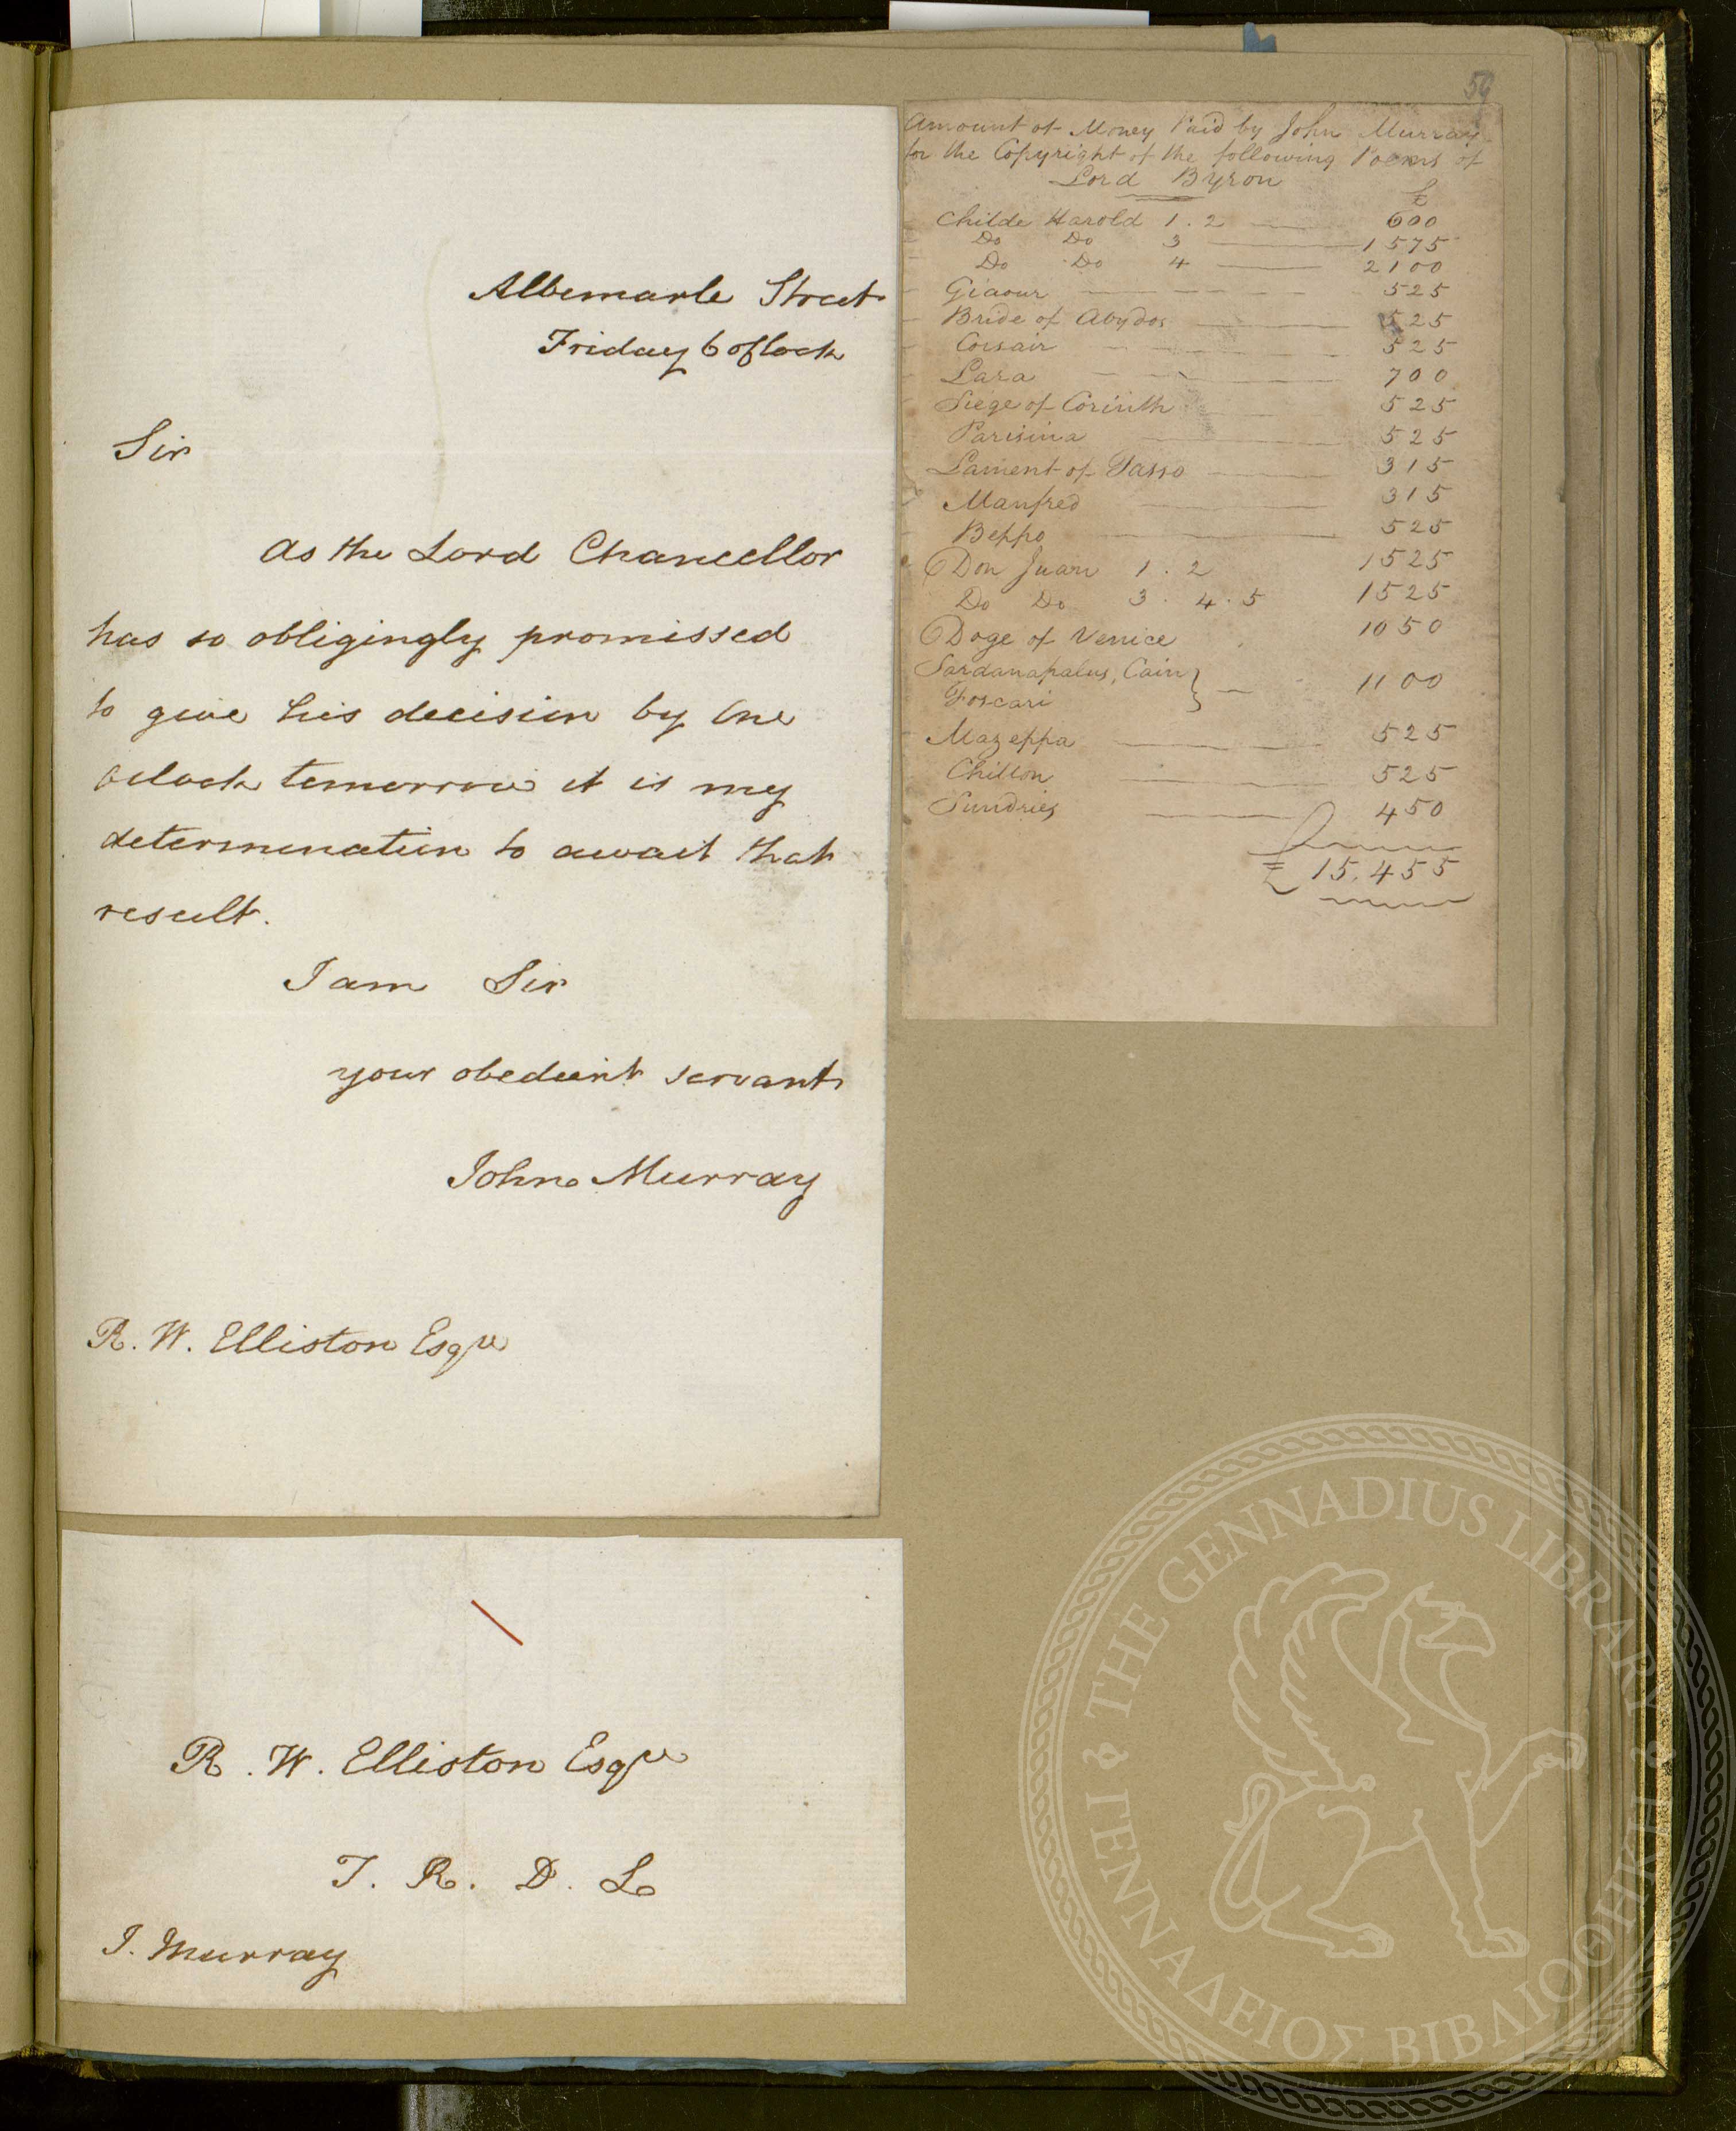 Albemarle Street
Friday 6 oClock
Sir
As the Lord Chancellor
has so obligingly promissed
to give his decision by One
oclock tomorrow it is my
determination to await that
result.
I am Sir
your obedient servant
John Murray
R. W. Elliston Esqre
R. W. Elliston Esqre
T. R. D. L
J. Murray
59
Amount of Money Paid by John Murray
for the Copyright of the following Poems of
Lord Byron
£
Childe Harold 1. 2 600
Do Do 3 1575
Do Do 4 2100
Giaour 525
Bride of Abydos 525
Corsair 525
Lara 700
Siege of Corinth 525
Parisina 525
Lament of Tasso 315
Manfred 315
Beppo 525
Don Juan 1. 2 1525
Do Do 3. 4. 5 1525
Doge of Venice 1050
Sardanapalus, Cain } 1100
Foscari
Mazeppa 525
Chillon 525
Sundries 450
£ 15,455
THE GENNADIUS LIBRARY & ΓΕΝΝΑΔΕΙΟΣ ΒΙΒΛΙΟΘΗΚΗ &